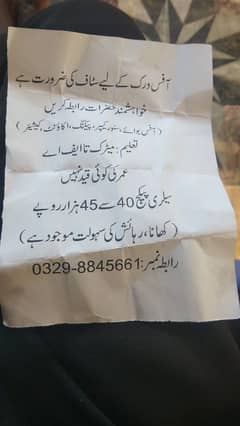 آفس ورک کے لیے سٹاف کی ضرورت ہے
خواہشمند حضرات رابطہ کریں
(آفس بوائے، سٹور کیپر، پیکنگ، اکاؤنٹنٹ، کیشیئر)
تعلیم: میٹرک تا ایف اے
عمر کی کوئی قید نہیں
سیلری پیکج 40 سے 45 ہزار روپے
(کھانا، رہائش کی سہولت موجود ہے)
رابطہ نمبر: 0329-8845661